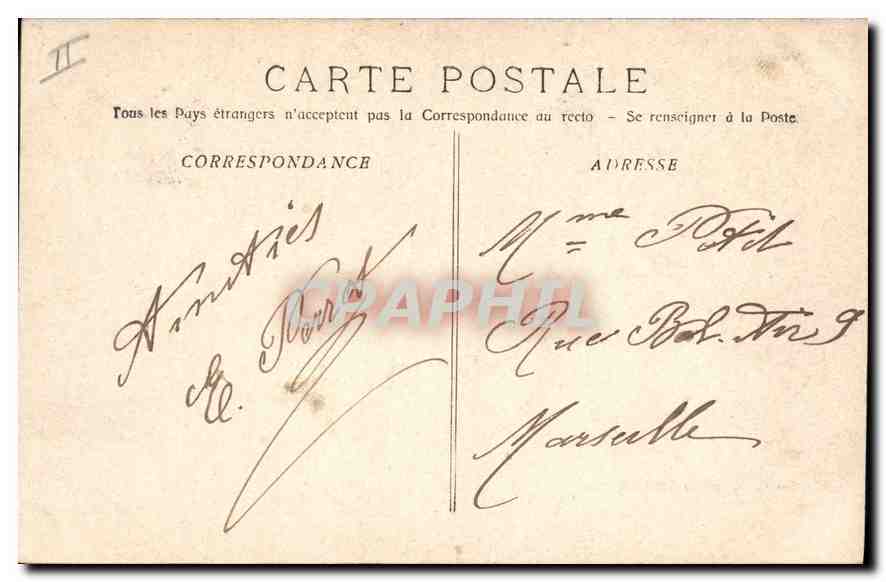 II
CARTE POSTALE
Tous les Pays étrangers n'acceptent pas la Correspondance au recto – Se renseigner à la Poste.
CORRESPONDANCE
ADRESSE
Amitiés
E. Perrot
CPAPHIL
Mme Petit
Rue 9
Marseille